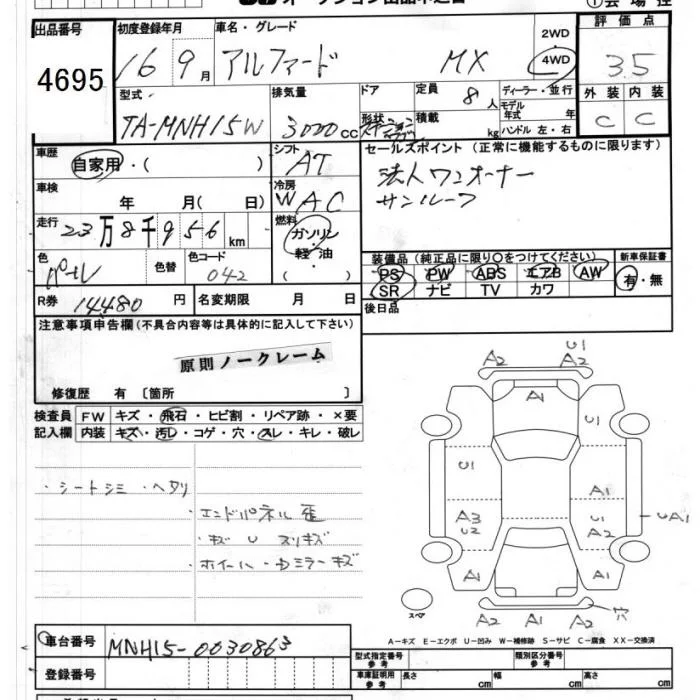 出品番号
4695
初度登録年月
16 9月
車名・グレード
アルファード MX
2WD
4WD
評価点
3.5
外装 内装
C C
型式
TA-MNH15W
排気量
3000cc
ドア
形状
定員
8人
積載
kg
ディーラー・並行
モデル年式 年
ハンドル 左・右
車歴
自家用・( )
シフト
AT
セールスポイント (正常に機能するものに限ります)
法人ワンオーナー
サンルーフ
車検
年 月( 日)
冷房
WAC
走行
23万8千956km
燃料
ガソリン
軽油
( )
色
パール
色替
色コード
042
装備品 (純正品に限り〇をつけてください)
新車保証書
PS PW ABS エアB AW
SR ナビ TV カワ
有・無
R券 14480円
名変期限 月 日
後日品
注意事項申告欄(不具合内容等は具体的に記入して下さい)
原則ノークレーム
修復歴 有 〔箇所 〕
検査員
記入欄
FW キズ・飛石・ヒビ割・リペア跡・×要
内装 キズ・汚レ・コゲ・穴・スレ・キレ・破レ
・シートシミ・ヘタリ
・エンドパネル歪
・キズ U スリキズ
・ホイール・ドミラーキズ
U1
A2 A2
A1
U1
U1
A1
A3
U2
U1
A2
UA1
A1 A1
穴
A2 A1 A2
スペア
A-キズ E-エクボ U-凹み W-補修跡 S-サビ C-腐食 XX-交換済
車台番号
MNH15-0030863
登録番号
型式指定番号
参考
類別区分番号
参考
車庫証明用
参考
長さ cm 幅 cm 高さ cm